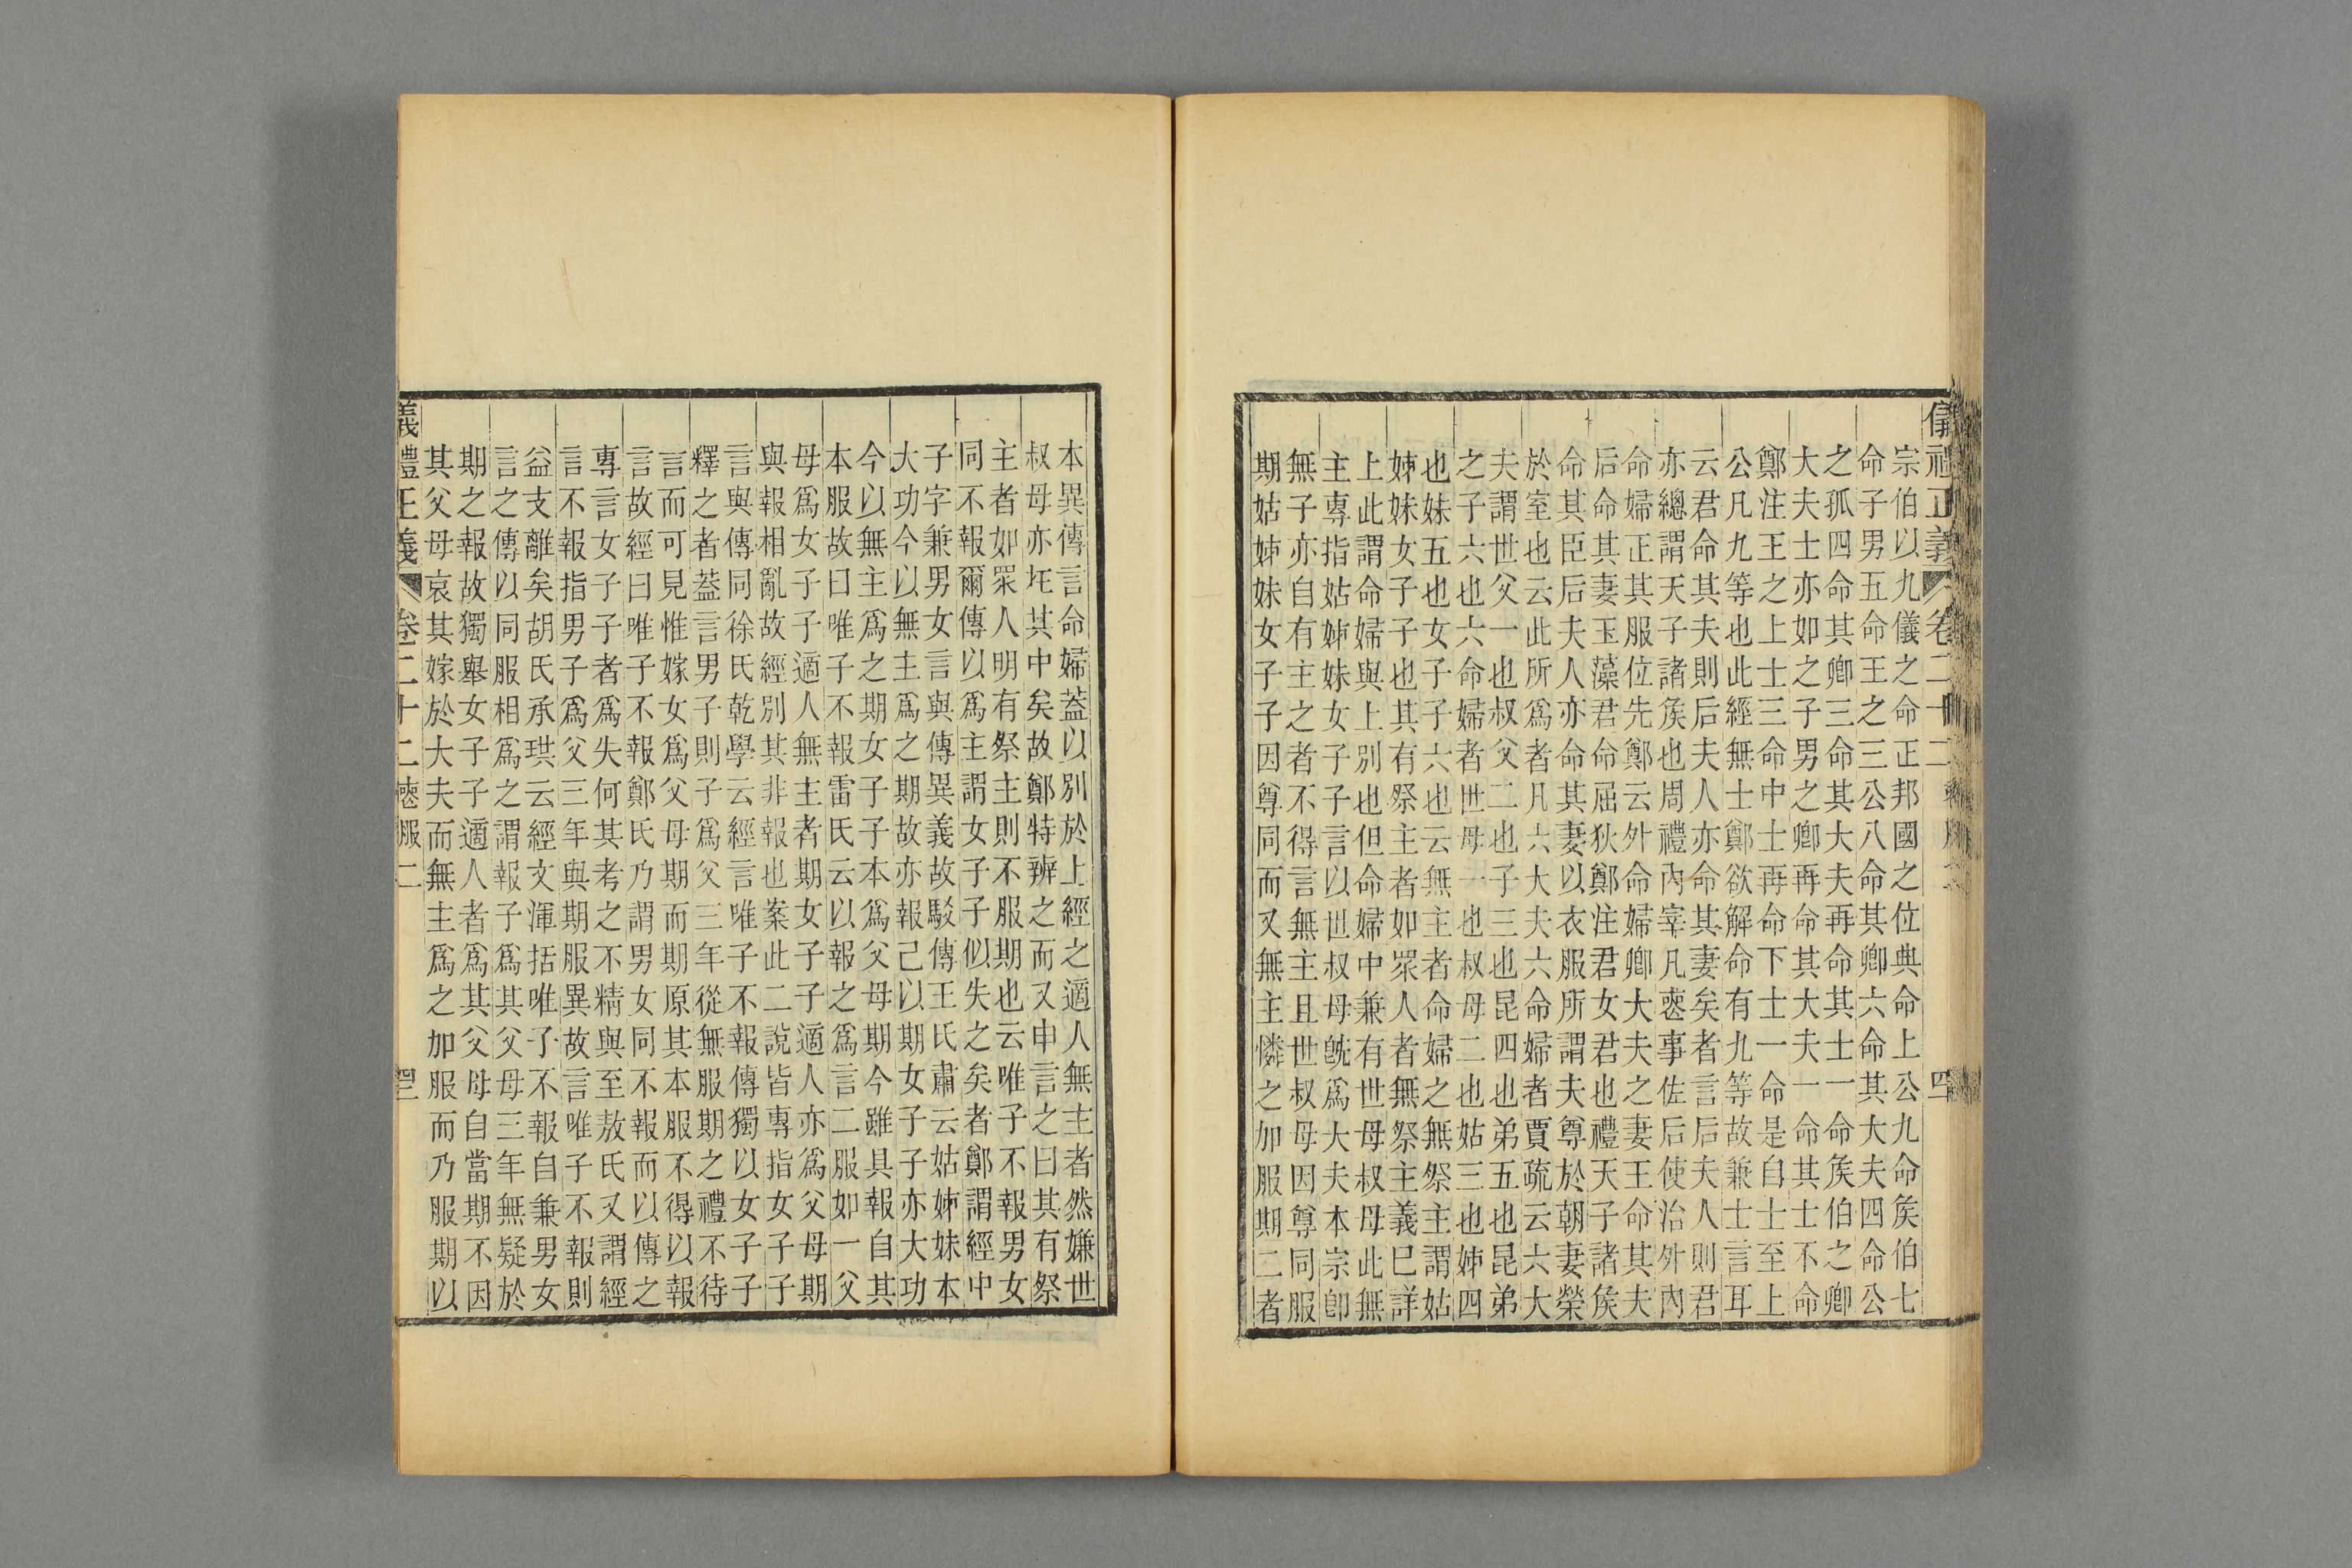 儀禮正義 卷二十二 四
宗伯以九儀之命正邦國之位典命上公九命矦伯七
命子男五命王之三公八命其卿六命其大夫四命公
之孤四命其卿三命其大夫再命其士一命矦伯之卿
大夫士亦如之子男之卿再命其大夫一命其士不命
鄭注王之上士三命中士再命下士一命是自士至上
公凡九等也此經無士鄭欲解命有九等故兼士言耳
云君命其夫則后夫人亦命其妻矣者言后夫人則君
亦總謂天子諸矦也周禮內宰凡喪事佐后使治外內
命婦正其服位先鄭云外命婦卿大夫之妻王命其夫
后命其妻玉藻君命屈狄鄭注君女君也禮天子諸矦
命其臣后夫人亦命其妻以衣服所謂夫尊於朝妻榮
於室也云此所爲者凡六大夫六命婦者賈疏云六大
夫謂世父一也叔父二也子三也昆四也弟五也昆弟
之子六也六命婦者世母一也叔母二也姑三也姊四
也妹五也女子子六也云無主者命婦之無祭主謂姑
姊妹女子子也其有祭主者如眾人者無祭主義已詳
上此謂命婦與上別也但命婦中兼有世母叔母此無
主專指姑姊妹女子子言以世叔母旣爲大夫本宗卽
無子亦自有主之者不得言無主且世叔母因尊同服
期姑姊妹女子子因尊同而又無主憐之加服期二者
本異傳言命婦蓋以別於上經之適人無主者然嫌世
叔母亦在其中矣故鄭特辨之而又申言之曰其有祭
主者如眾人明有祭主則不服期也云唯子不報男女
同不報爾傳以爲主謂女子子似失之矣者鄭謂經中
子字兼男女言與傳異義故駁傳王氏肅云姑姊妹本
大功今以無主爲之期故亦報己以期女子子亦大功
今以無主爲之期女子子本爲父母期今雖具報自其
本服故曰唯子不報雷氏云以報之爲言二服如一父
母爲女子子適人無主者期女子子適人亦爲父母期
與報相亂故經別其非報也案此二說皆專指女子子
言與傳同徐氏乾學云經言唯子不報傳獨以女子子
釋之者蓋言男子則子爲父三年從無服期之禮不待
言而可見惟嫁女爲父母期而期原其本服不得以報
言故經曰唯子不報鄭氏乃謂男女同不報而以傳之
專言女子子者爲失何其考之不精與至敖氏又謂經
言不報指男子爲父三年與期服異故言唯子不報則
益支離矣胡氏承珙云經文渾括唯子不報自兼男女
言之傳以同服相爲之謂報子爲其父母三年無疑於
期之報故獨舉女子子適人者爲其父母自當期不因
其父母哀其嫁於大夫而無主爲之加服而乃服期以
儀禮正義 卷二十二 喪服二